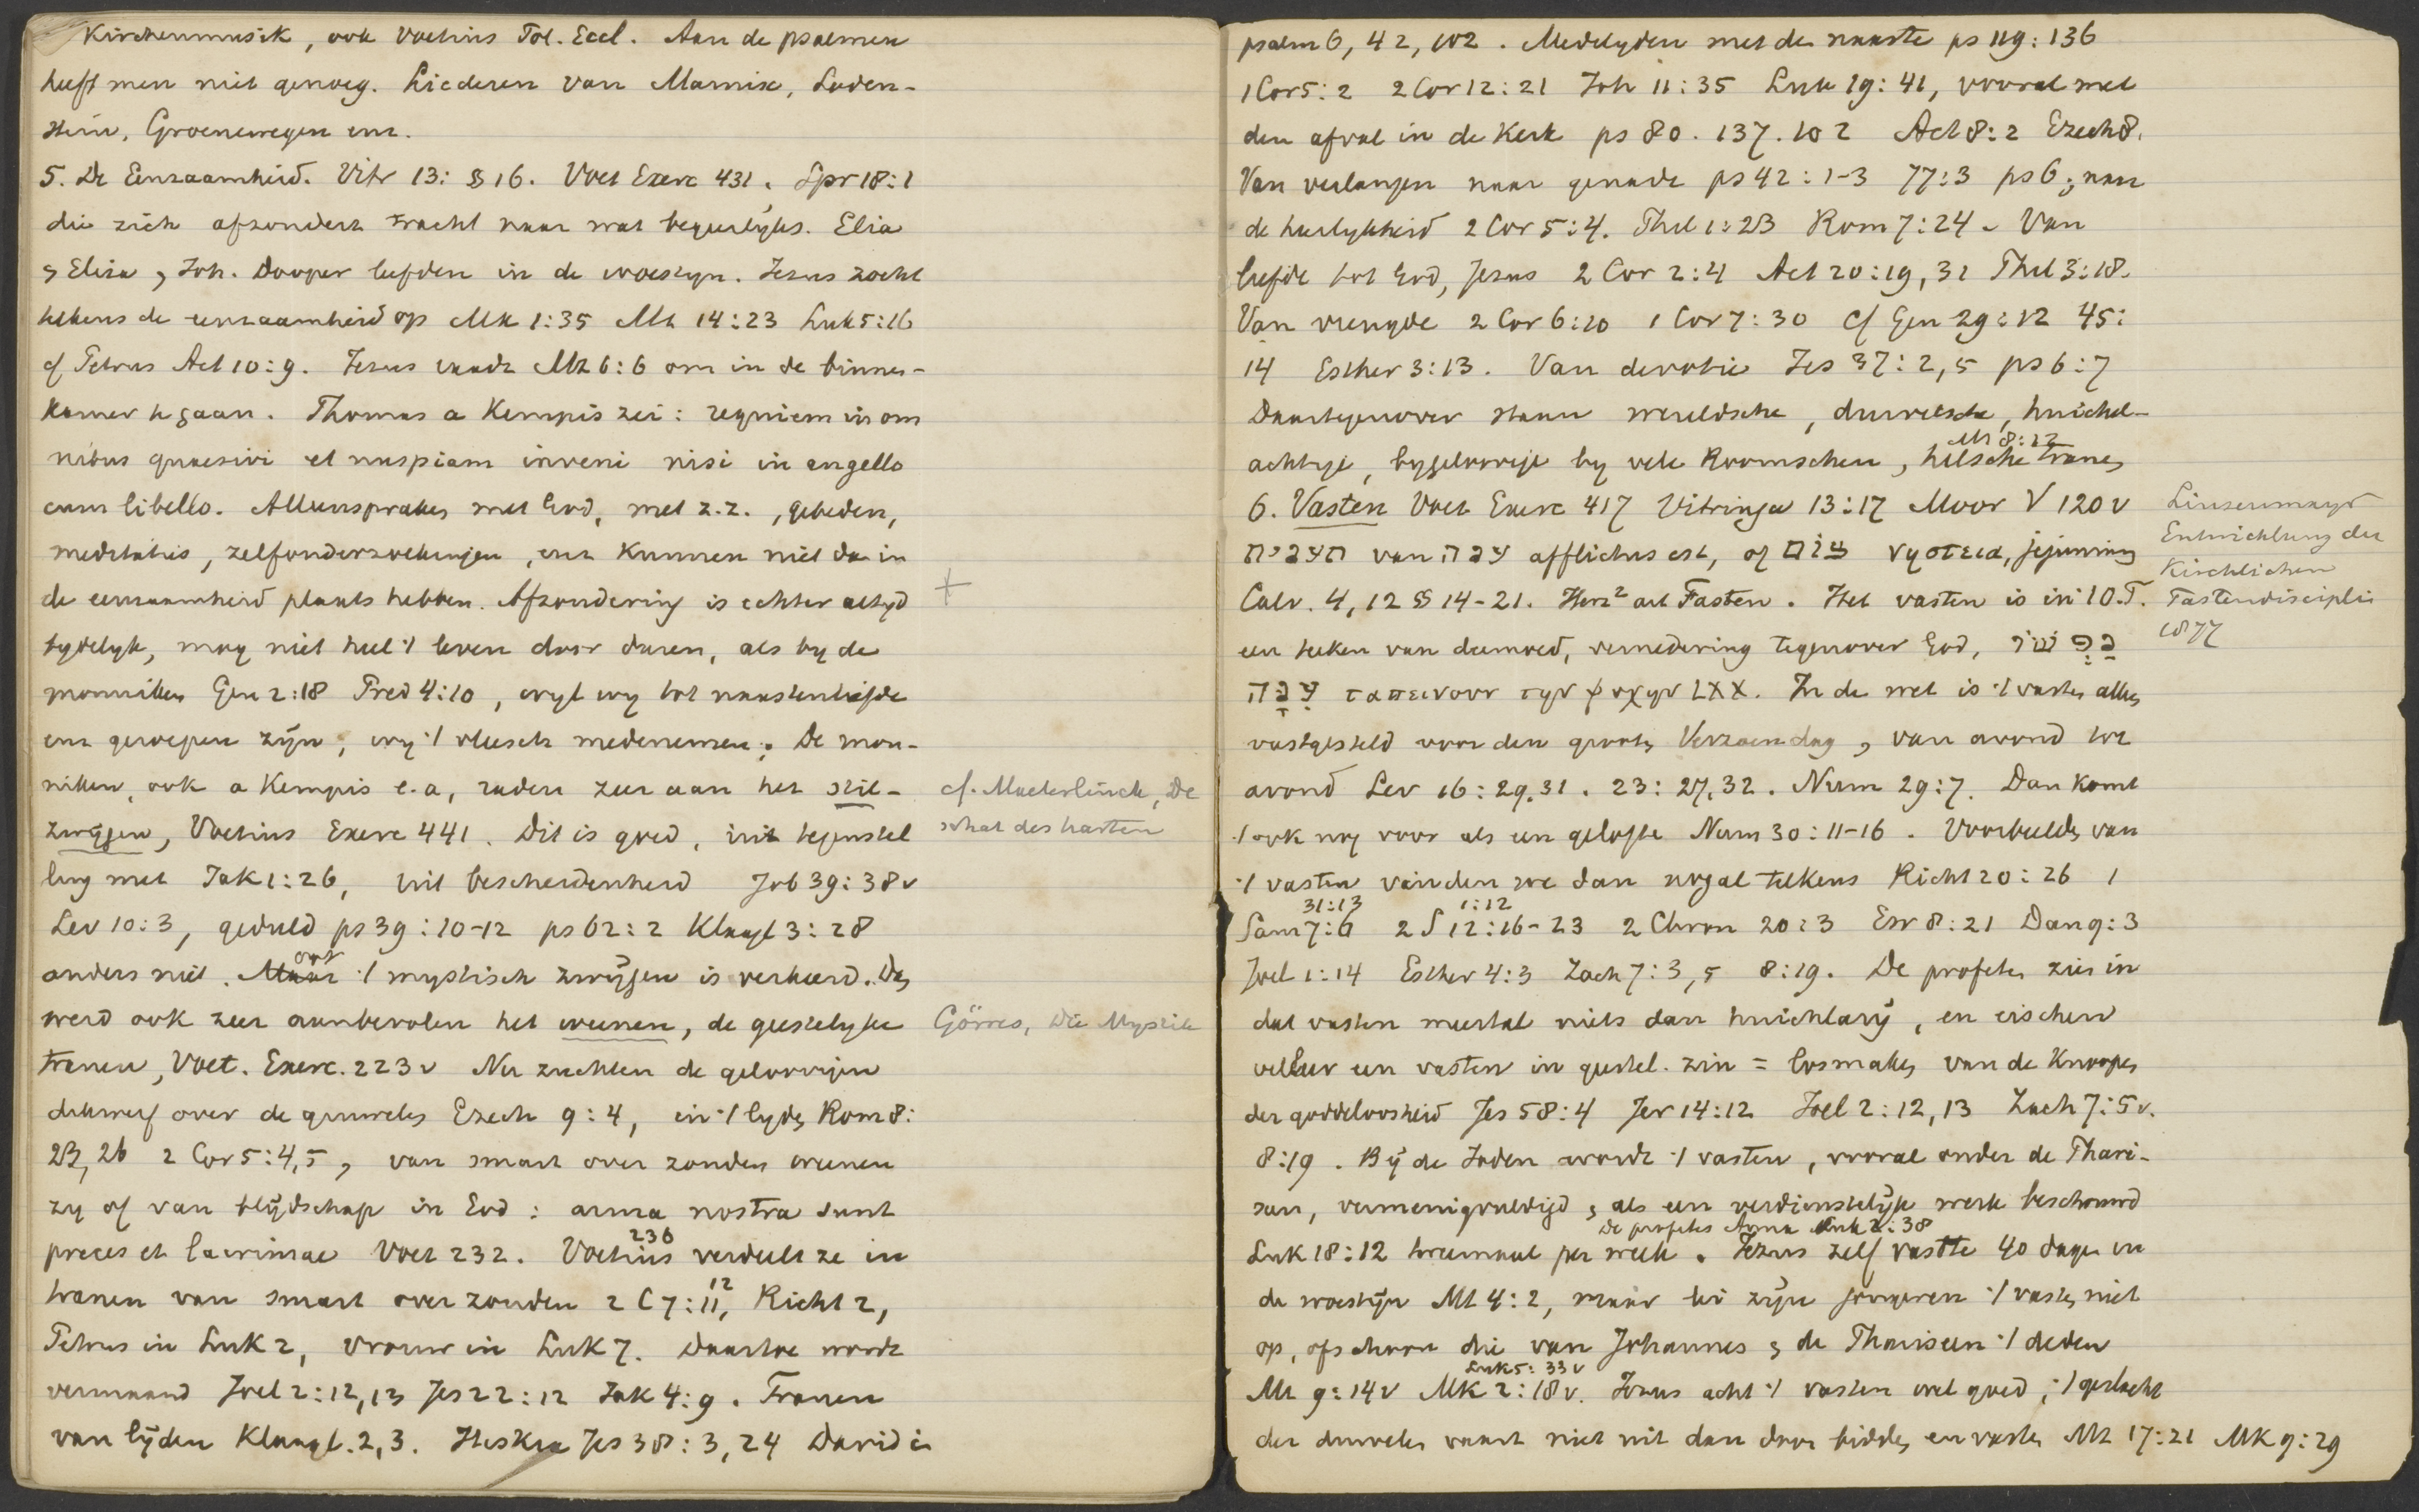 Kirchenmusik, ook Voetius Pol. Eccl. Aan de psalmen
heeft men niet genoeg. Liederen van Marnix, Loden-
stein, Groenewegen enz.
5. De Eenzaamheid. Vitr 13: § 16. Voet Exerc 431, Spr 18:1
die zich afzondert tracht naar wat begeerlijks. Elia
& Elisa, Joh. Dooper leefden in de woestyn. Jezus zocht
telkens de eenzaamheid op Mk 1:35 Mt 14:23 Luk 5:16
cf Petrus Act 10:9. Jezus raadt Mt 6:6 om in de binnen-
kamer te gaan. Thomas a Kempis zei: requiem in om
nibus quaesivi et nuspiam inveni nisi in angello
cum libello. Alleensprakes met God, met z.z., gebeden,
meditaties, zelfonderzoekingen, enz kunnen niet dan in
de eenzaamheid plaats hebben. Afzondering is echter altyd
tydelyk, mag niet heel 't leven door duren, als by de
monniken Gen 2:18 Pred 4:10, wyl wy tot naastenliefde
enz geroepen zijn, wy 't vleesch medenemen. De mon-
niken, ook a Kempis e.a, raden zeer aan het stil-
zwijgen, Voetius Exerc 441. Dit is goed, in tegenstel
ling met Jak 1:26, uit bescheidenheid Job 39:38v
Lev 10:3, geduld ps 39:10-12 ps 62:2 Klaagl 3:28
anders niet. Maar ook 't mystisch zwijgen is verkeerd. Dan
werd ook zeer aanbevolen het weenen, de geestelyke
tranen, Voet. Exerc. 223v Nu zuchten de geloovigen
dikwerf over de gruwelen Ezech 9:4, in 't lyden Rom 8:
23, 26 2 Cor 5:4,5, van smart over zonden weenen
zy of van blijdschap in God: arma nostra sunt
preces et lacrimae Voet 232. Voetius 236 verdeelt ze in
tranen van smart over zonden 2 C 7:11, 12 Richt 2,
Petrus in Luk 2, vrouw in Luk 7. Daartoe wordt
vermaand Joel 2:12,13 Jes 22:12 Jak 4:9. Tranen
van lijden Klaagl. 2,3. Hiskia Jes 38:3,24 David in
+
cf. Maeterlinck, De
schat des harten
Görres, Die Mystik
psalm 6, 42, 102. Medelyden met de naaste ps 119:136
1 Cor 5:2 2 Cor 12:21 Joh 11:35 Luk 19:41, vooral met
den afval in de Kerk ps 80. 137. 102 Act 8:2 Ezech 8.
Van verlangen naar genade ps 42:1-3 77:3 ps 6; naar
de heerlykheid 2 Cor 5:4. Phil 1:23 Rom 7:24. Van
liefde tot God, Jezus 2 Cor 2:4 Act 20:19,31 Phil 3:18.
Van vreugde 2 Cor 6:10 1 Cor 7:30 cf Gen 29:12 45:
14 Esther 3:13. Van devotie Jes 37:2,5 ps 6:7
Daartegenover staan wereldsche, duivelsche, huichel-
achtige, bygeloovige by vele Roomschen, helsche tranen Mt 8:12
6. Vasten Voet Exerc 417 Vitringa 13:17 Moor V 120v
תענית van ענה afflictus est, of צום νηστεια, jejunium
Calv. 4,12 §§ 14-21. Herz² art Fasten. Het vasten is in 't O.T.
een teeken van deemoed, vernedering tegenover God, נפש
ענה ταπεινουν την ψυχην LXX. In de wet is 't vasten alleen
vastgesteld voor den grooten Verzoendag, van avond tot
avond Lev 16:29,31. 23:27,32. Num 29:7. Dan komt
't ook nog voor als een gelofte Num 30:11-16. Voorbeelden van
't vasten vinden we dan nogal telkens Richt 20:26 1
Sam 7:6 31:13 2 S 12:16-23 1:12 2 Chron 20:3 Esr 8:21 Dan 9:3
Joel 1:14 Esther 4:3 Zach 7:3,5 8:19. De profeten zien in
dat vasten meestal niets dan huichlarij, en eischen
velleer een vasten in geestel. zin = losmaken van de Knoopen
der goddeloosheid Jes 58:4 Jer 14:12 Joel 2:12,13 Zach 7:5v.
8:19. Bij de Joden wordt 't vasten, vooral onder de Phari-
seen, vermenigvuldigd & als een verdienstelijk werk beschouwd
Luk 18:12 tweemaal per week. de profetes Anna Luk 2:38 Jezus zelf vastte 40 dagen in
de woestijn Mt 4:2, maar lei zijn jongeren 't vasten niet
op, ofschoon die van Johannes & de Phariseen 't deden
Mt 9:14v Mk 2:18v. Luk 5:33v Jezus acht 't vasten wel goed, 't geslacht
der duivelen vaart niet uit dan door bidden en vasten Mt 17:21 Mk 9:29
Linsenmayr
Entwicklung der
Kirchlichen
Fastendisciplin
1877